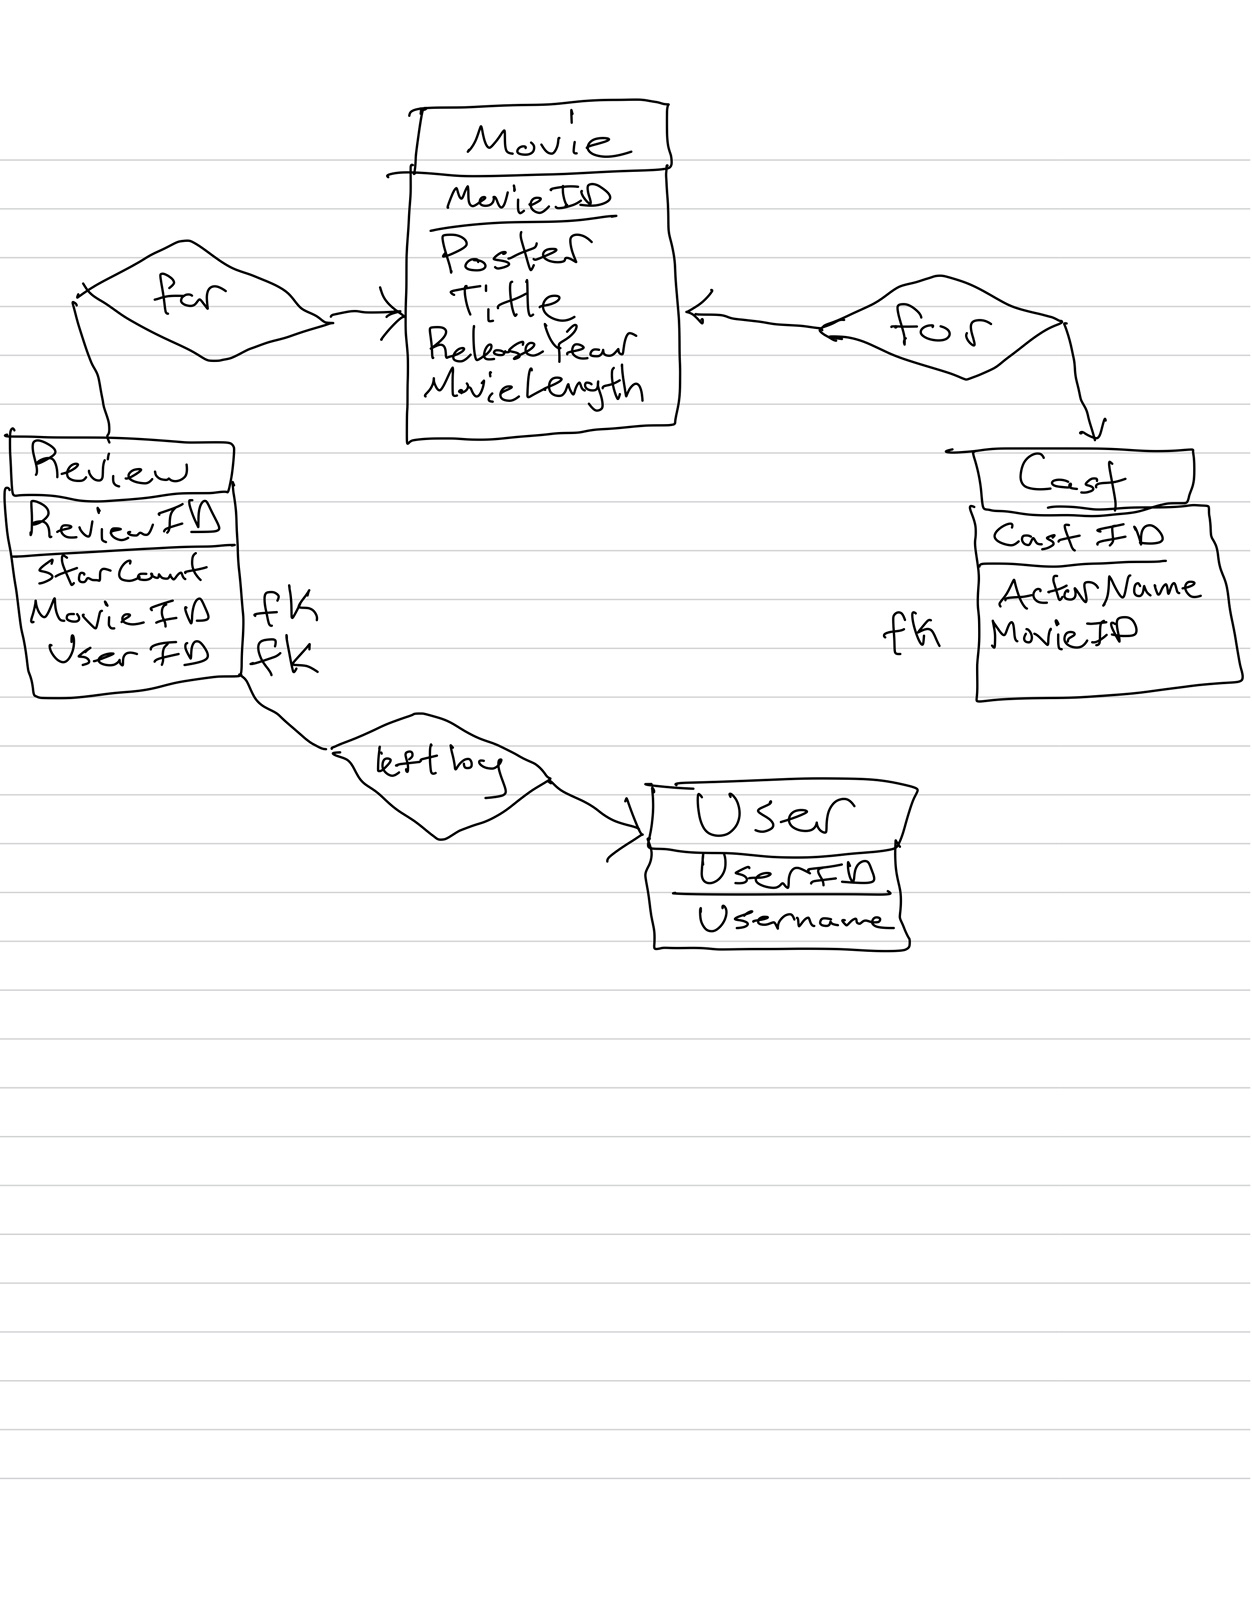 Movie
MovieID
Poster
Title
ReleaseYear
MovieLength
for
for
Review
ReviewID
StarCount
MovieID fk
UserID fk
Cast
Cast ID
ActorName
fk MovieID
left by
User
UserID
Username